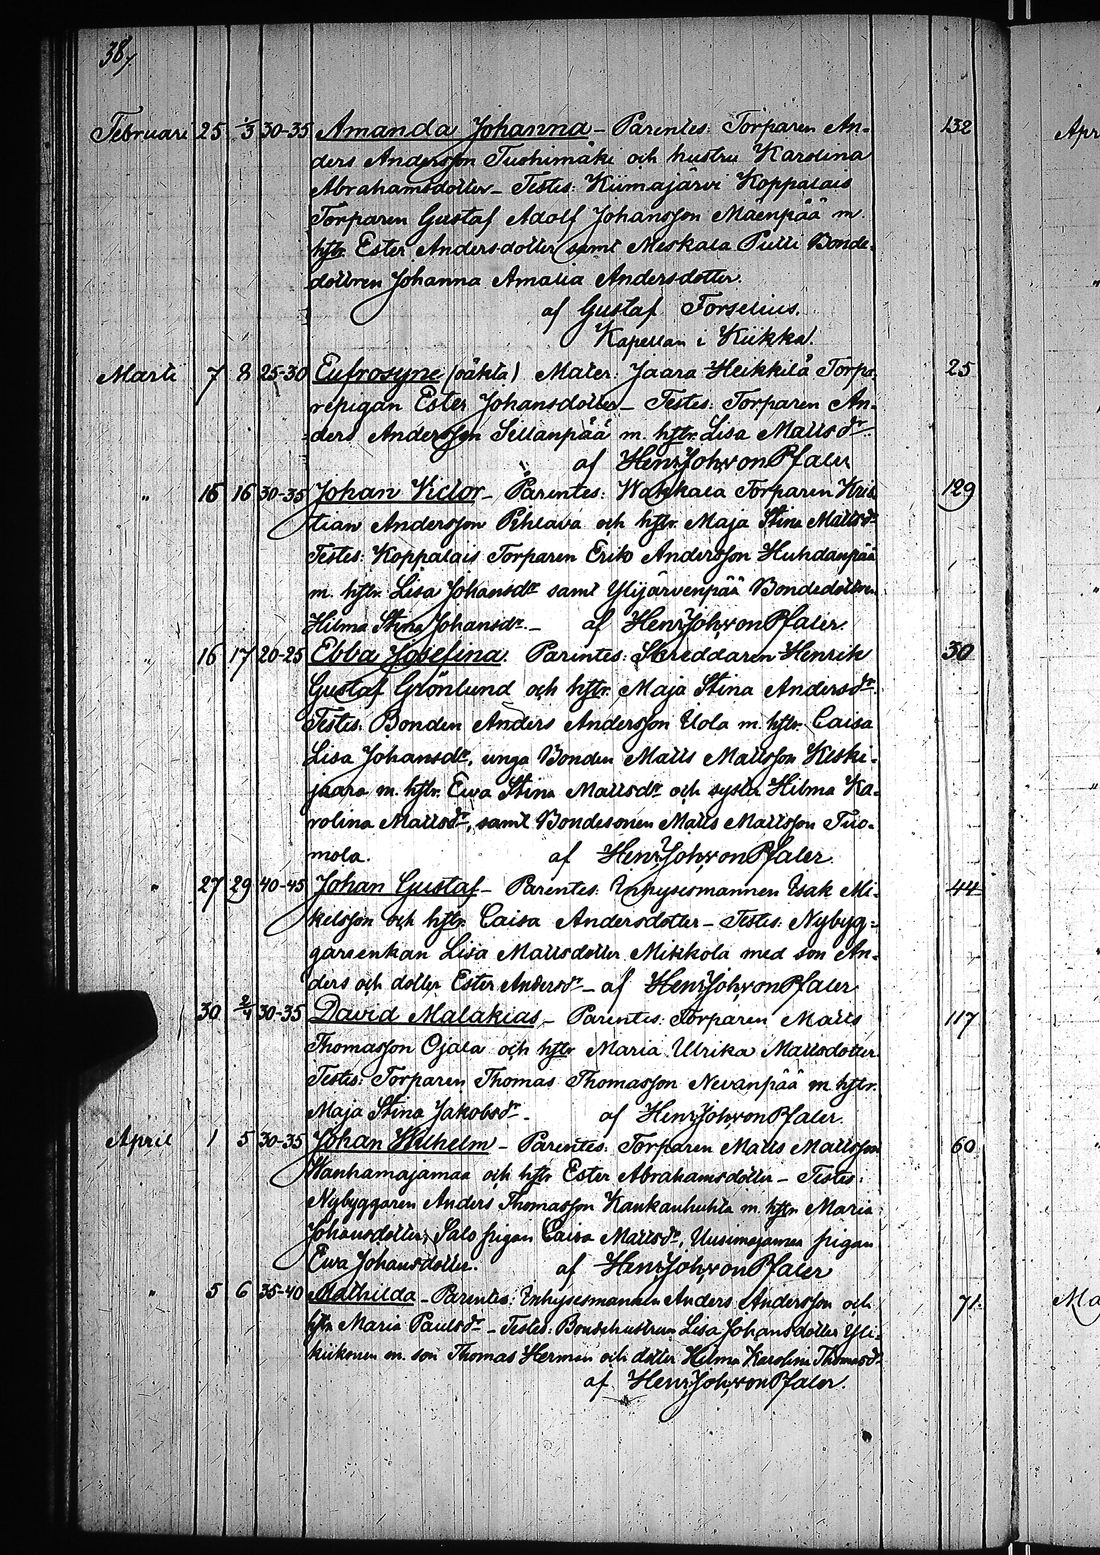 38,
Februari 25 1/3 30-35 Amanda Johanna - Parentes: Torparen An- 132
ders Andersson Tuohimäki och hustru Karolina
Abrahamsdotter - Testes: Kiimajärvi Koppalais
Torparen Gustaf Adolf Johansson Mäenpää m.
hstr. Ester Andersdotter samt Meskala Pulli Bonde-
dottren Johanna Amalia Andersdotter.
af Gustaf Forselius.
Kapellan i Kiikka.
Marti 7 8 25-30 Eufrosyne (oäkta) Mater: Jaara Heikkilä Torpa- 25
repigan Ester Johansdotter - Testes: Torparen An-
ders Andersson Sillanpää m. hstr. Lisa Mattsdr.
af Henr Joh von Pfaler
" 15 16 30-35 Johan Victor - Parentes: Torparen Kris- 129
tian Andersson Pihlava och hstr. Maja Stina Mattsdr
Testes: Koppalais Torparen Erik Andersson Huhdanpää
m. hstr. Lisa Johansdr samt Ylijärvenpää Bondedottren
Hilma Stina Johansdr. - af Henr Joh von Pfaler.
" 16 17 20-25 Ebba Josefina. Parentes: Skreddaren Henrik 30
Gustaf Grönlund och hstr. Maja Stina Andersdr.
Testes: Bonden Anders Andersson Uola m. hstr. Caisa
Lisa Johansdr, unga Bonden Matts Mattsson Keski-
jaara m. hstr. Ewa Stina Mattsdr och syster Hilma Ka-
rolina Mattsdr, samt Bondesonen Matts Mattsson Tuo-
mola. af Henr Joh von Pfaler.
" 27 29 40-45 Johan Gustaf - Parentes: Inhysesmannen Isak Mi- 44
kelsson och hstr. Caisa Andersdotter - Testes: Nybyg-
gareenkan Lisa Mattsdotter Mikkola med son An-
ders och dotter Ester Andersdr - af Henr Joh von Pfaler
30 2/4 30-35 David Malakias - Parentes: Torparen Matts 117
Thomasson Ojala och hstr Maria Ulrika Mattsdotter
Testes: Torparen Thomas Thomasson Nevanpää m. hstr.
Maja Stina Jakobsdr - af Henr Joh von Pfaler.
April 1 5 30-35 Johan Wilhelm - Parentes: Torparen Matts Mattsson 60
Wanhamajamaa och hstr Ester Abrahamsdotter - Testes:
Nybyggaren Anders Thomasson Kankanhuhta m. hstr Maria
Johansdotter, Salo pigan Caisa Mattsdr, Uusimajamaa pigan
Ewa Johansdotter. af Henr Joh von Pfaler
" 5 6 35-40 Mathilda - Parentes: Inhysesmannen Anders Andersson och 71.
hstr Maria Paulsdr - Testes: Bondehustrun Lisa Johansdotter Yli-
kiikonen m. son Thomas Herman och dotter Hilma Karolina Thomasdr
af Henr Joh von Pfaler.
Apr
Ma